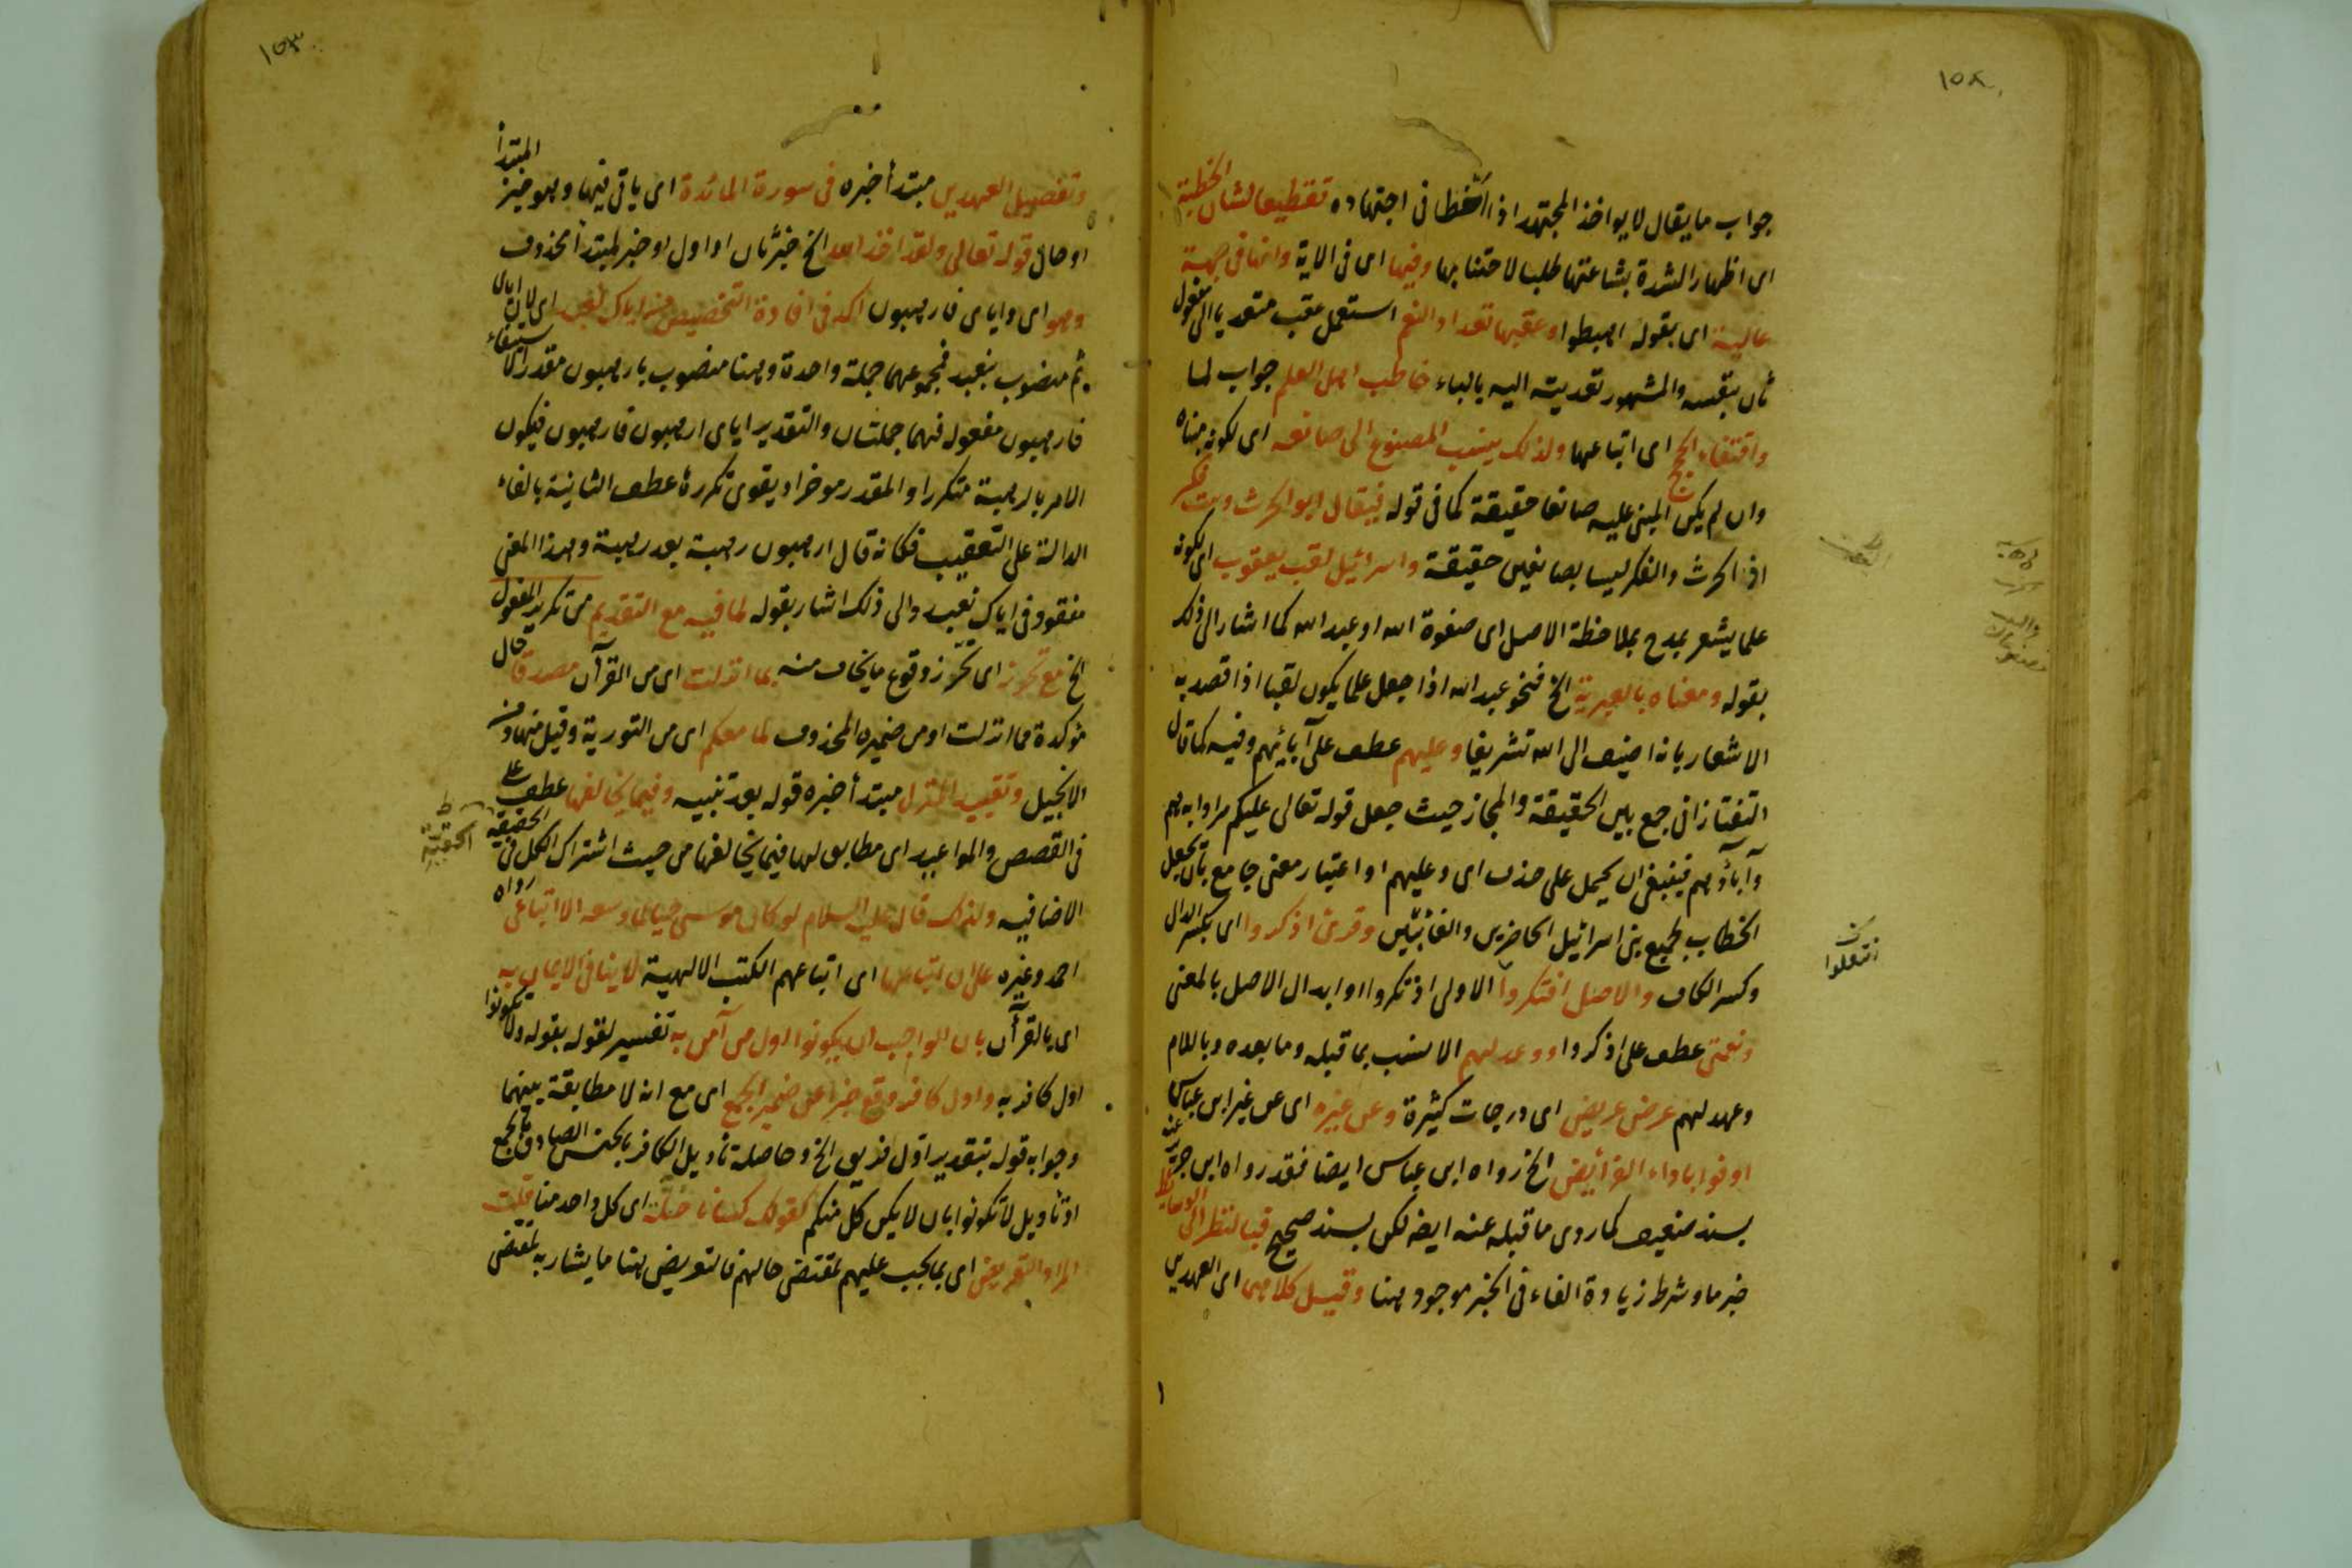 ١٥٨
جواب ما يقال لا يواخذ المجتهد اذا اخطا فى اجتهاده تفظيعا لشان الخطيئة
اى اظهار الشدة بشاعتها طلبا لاجتنابها وفيها اى فى الاية وانها فى جهة
عالية اى بقوله اهبطوا وعقبها تعداد النعم استعمل عقب متعديا الى مفعول
ثان بنفسه والمشهور تعديته اليه بالباء خاطب اهل العلم جواب لما
واقتفاء الحجج اى اتباعها ولذلك ينسب المصنوع الى صانعه اى لكونه مبناه
وان لم يكن المبنى عليه صانعا حقيقة كما فى قوله فيقال ابو الحرث وبنت فكر
اذ الحرث والفكر ليسا بصانعين حقيقة واسرائيل لقب يعقوب اى لكونه
علما يشعر بمدح بملاحظة الاصل اى صفوة الله او عبد الله كما اشار الى ذلك
بقوله ومعناه بالعبرية الخ فنحو عبد الله اذا جعل علما يكون لقبا اذا قصد به
الاشعار بانه اضيف الى الله تشريفا وعليهم عطف على آبائهم وفيه كما قال
التفتازانى جمع بين الحقيقة والمجاز حيث جعل قوله تعالى عليكم مرادا به هم
وآباؤهم فينبغى ان يحمل على حذف اى وعليهم او اعتبار معنى جامع بان يجعل
الخطاب لجميع بنى اسرائيل الحاضرين والغائبين وقرئ اذكروا اى بكسر الذال
وكسر الكاف والاصل افتكروا الاولى اذتكروا او ابدال الاصل بالمعنى
ونعمتى عطف على اذكروا ووعدلهم الانسب بما قبله وما بعده وباللام
وعهد لهم عرض عريض اى درجات كثيرة وعن غيره اى عن غير ابن عباس
اوفوا باداء الفرائض الخ رواه ابن عباس ايضا فقد رواه ابن جرير عنه
بسند ضعيف كما روى ما قبله عنه ايضا لكن بسند صحيح فبالنظر الى الوسايط
خبر ما وشرط زيادة الفاء فى الخبر موجود هنا وقيل كلاهما اى العهدين
١٥٣
وتفصيل العهدين مبتدأ خبره فى سورة المائدة اى ياتى فيها وهو خبر المبتدأ
او حال قوله تعالى ولقد اخذ الله الخ خبر ثان او اول او خبر لمبتدأ محذوف
وهو اى واياى فارهبون اكد فى افادة التخصيص من اياك نعبد اى لان اياك
ثم منصوب بنعبد فمجموعهما جملة واحدة وهنا منصوب بارهبون مقدرا لاستيفاء
فارهبون مفعوله فهما جملتان والتقدير اياى ارهبون فارهبون فيكون
الامر بالرهبة متكررا والمقدر موخرا ويقوى تكرره عطف الثانية بالفاء
الدالة على التعقيب فكانه قال ارهبون رهبة بعد رهبة وهذا المعنى
مفقود فى اياك نعبد والى ذلك اشار بقوله لما فيه مع التقديم من تكرير المفعول
الخ مع تحرز اى تحرز وقوع ما يخاف منه بما انزلت اى من القرآن مصدقا حال
مؤكدة مما انزلت او من ضميره المحذوف لما معكم اى من التورية وقيل منها ومن
الانجيل وتقييد المنزل مبتدأ خبره قوله بعد تنبيه وفيما يخالفها عطف على
فى القصص والمواعيد اى مطابق لها فيما يخالفها من حيث اشتراك الكل فى الحقيقة
الاضافيه ولذلك قال عليه السلام لو كان موسى حيا لما وسعه الا اتباعى رواه
احمد وغيره على ان اتباعها اى اتباعهم الكتب الالهية لا ينافى الايمان به
اى بالقرآن بان الواجب ان يكونوا اول من آمن به تفسير لقوله بقوله ولا تكونوا
اول كافر به واول كافر وقع خبرا عن ضمير الجمع اى مع انه لا مطابقة بينهما
وجوابه قوله بتقدير اول فريق الخ وحاصله تأويل الكافر بالجنس الصادق بالجمع
او تأويل لا تكونوا بان لا يكن كل منكم كقولك كسانا حلة اى كل واحد منا قلت
المراد التعريض اى بما يجب عليهم لمقتضى حالهم فالتعريض هنا ما يشار به لمعنى